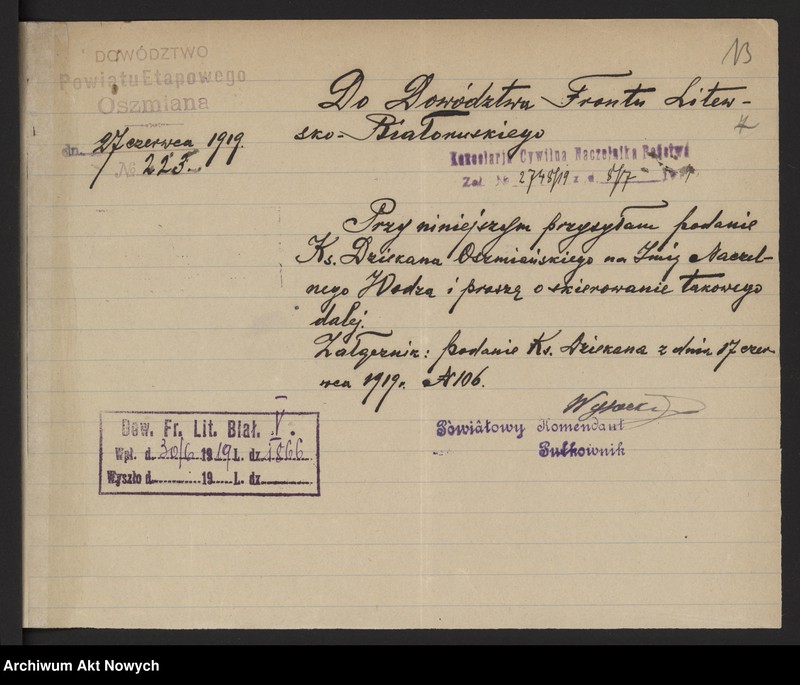 DOWÓDZTWO
Powiatu Etapowego
Oszmiana
dn. 27 czerwca 1919.
№ 223.
Do Dowództwa Frontu Litew-
sko-Białoruskiego
Kancelarja Cywilna Naczelnika Państwa
Zał. № 2748/19 z d. 8/7
Przy niniejszym przysyłam podanie
Ks. Dziekana Oszmiańskiego na Imię Naczel-
nego Wodza i proszę o skierowanie takowego
dalej.
Załącznik: podanie Ks. Dziekana z dnia 17 czer-
wca 1919 r. № 106.
Powiatowy Komendant
Pułkownik
Dow. Fr. Lit. Biał. V.
Wpł. d. 30/6 1919 L. dz. 1866
Wyszło d. 19 L. dz.
Archiwum Akt Nowych